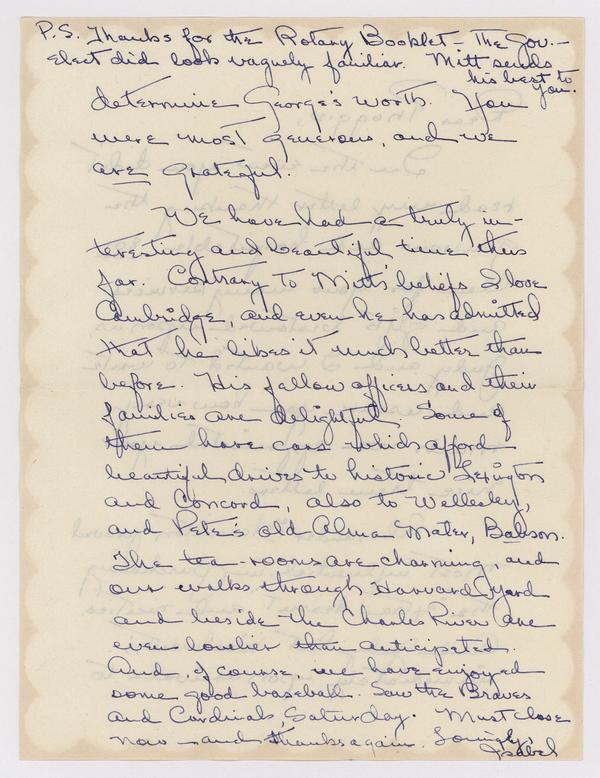 P.S. Thanks for the Rotary Booklet – The Gov.–
Elect did look vaguely familiar. Mitt sends
his best to
you.
determine George's worth. You
were most generous, and we
are grateful.
We have had a truly in-
teresting and beautiful time thus
far. Contrary to Mitts' beliefs I love
Cambridge, and even he has admitted
that he likes it much better than
before. His fellow officers and their
families are delightful. Some of
them have cars which afford
beautiful drives to historic Lexington
and Concord, also to Wellesley,
and Pete's old Alma Mater, Babson.
The tea-rooms are charming, and
our walks through Harvard Yard
and beside the Charles River are
even lovelier than anticipated.
And, of course, we have enjoyed
some good baseball. Saw the Braves
and Cardinals, Saturday. Must close
now – and thanks again. Lovingly,
Isabel